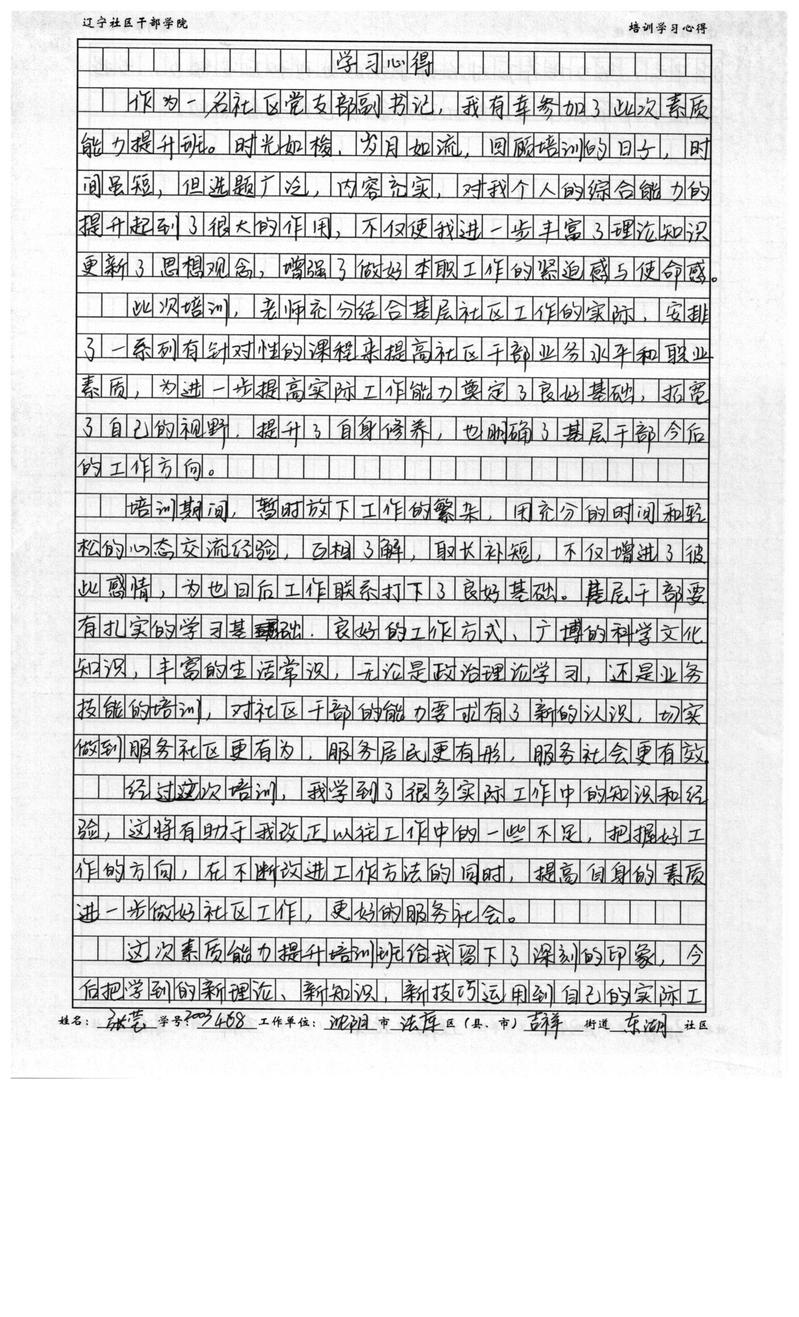 辽宁社区干部学院 培训学习心得
学习心得
作为一名社区党支部副书记，我有幸参加了此次素质
能力提升班。时光如梭，岁月如流，回顾培训的日子，时
间虽短，但选题广泛，内容充实，对我个人的综合能力的
提升起到了很大的作用，不仅使我进一步丰富了理论知识
更新了思想观念，增强了做好本职工作的紧迫感与使命感。
此次培训，老师充分结合基层社区工作的实际，安排
了一系列有针对性的课程来提高社区干部业务水平和职业
素质，为进一步提高实际工作能力奠定了良好基础，拓宽
了自己的视野，提升了自身修养，也明确了基层干部今后
的工作方向。
培训期间，暂时放下工作的繁杂，用充分的时间和轻
松的心态交流经验，互相了解，取长补短，不仅增进了彼
此感情，为也日后工作联系打下了良好基础。基层干部要
有扎实的学习基础、良好的工作方式、广博的科学文化
知识，丰富的生活常识，无论是政治理论学习，还是业务
技能的培训，对社区干部的能力要求有了新的认识，切实
做到服务社区更有为，服务居民更有形，服务社会更有效
经过这次培训，我学到了很多实际工作中的知识和经
验，这将有助于我改正以往工作中的一些不足，把握好工
作的方向，在不断改进工作方法的同时，提高自身的素质
进一步做好社区工作，更好的服务社会。
这次素质能力提升培训班给我留下了深刻的印象，今
后把学到的新理论、新知识，新技巧运用到自己的实际工
姓名：张莹 学号：2003468 工作单位：沈阳市法库区（县、市）吉祥街道东湖社区